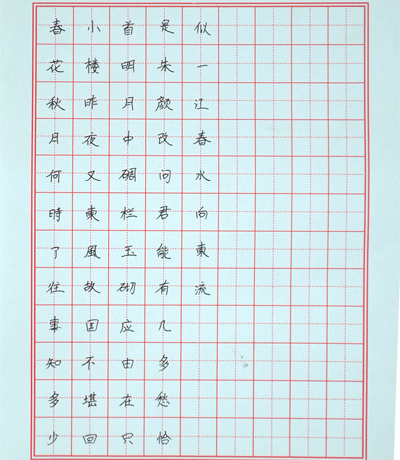 春花秋月何時了往事知多少
小楼昨夜又東風故国不堪回
首明月中碉栏玉砌应由在只
是朱颜改问君能有几多愁恰
似一江春水向東流